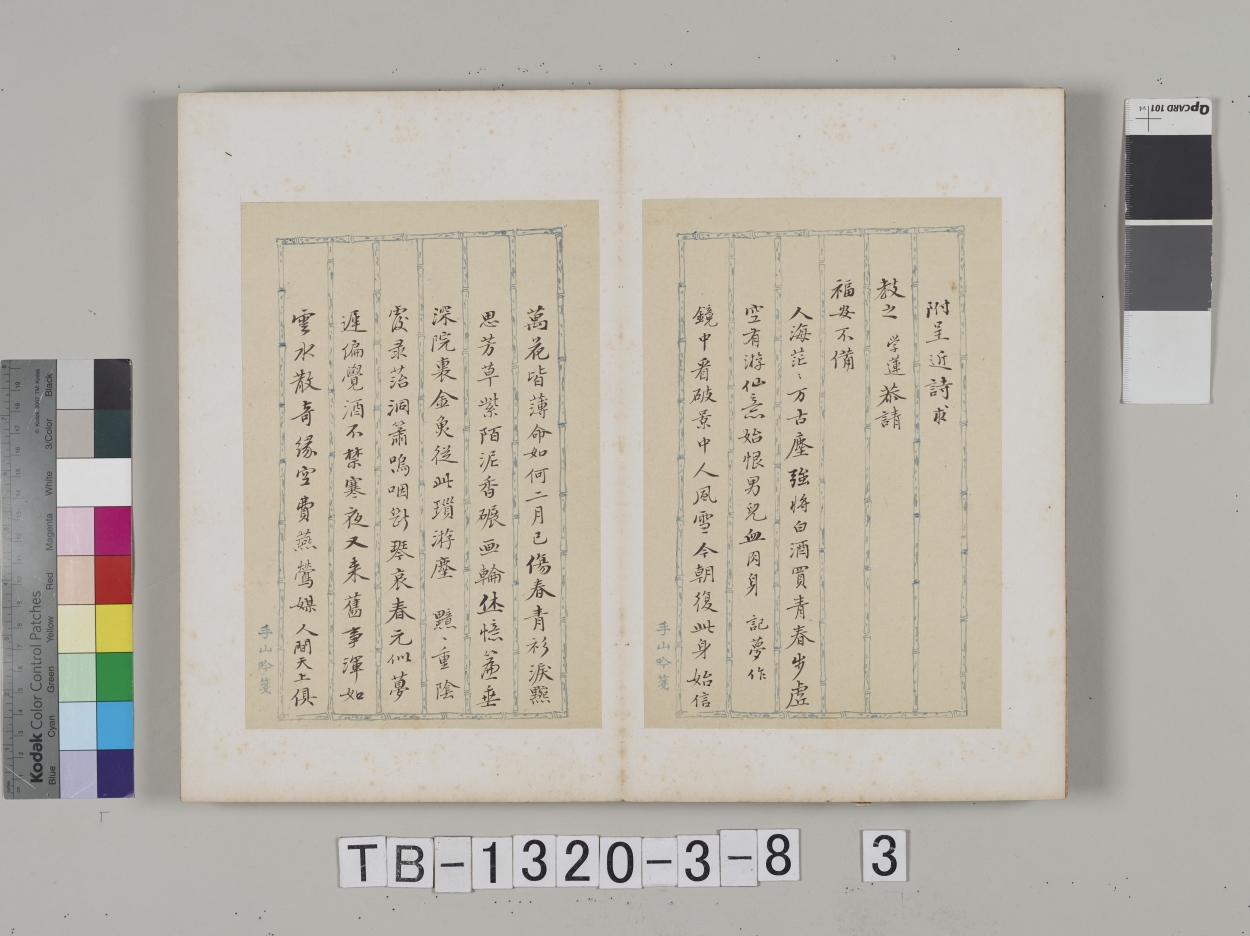 附呈近詩求
教之 学蓮恭請
福安不備
人海茫〻万古塵強将白酒買青春步虛
空有游仙意始恨男兒血肉身 記夢作
鏡中看破景中人風雪今朝復此身始信
手山吟箋
萬花皆薄命如何二月已傷春青衫淚點
思芳草紫陌泥香碾画輪 憶簾垂
深院裏金魚從此瑣游塵 黯〻重陰
覆录苔洞簫嗚咽斷琴哀春元似夢
遲偏覺酒不禁寒夜又来舊事渾如
雲水散奇緣空費燕鶯媒人間天上俱
手山吟箋
QPCARD 101 v4
Kodak Color Control Patches
© Kodak
Blue Cyan Green Yellow Red Magenta White 3/Color Black
TB-1320-3-8 3